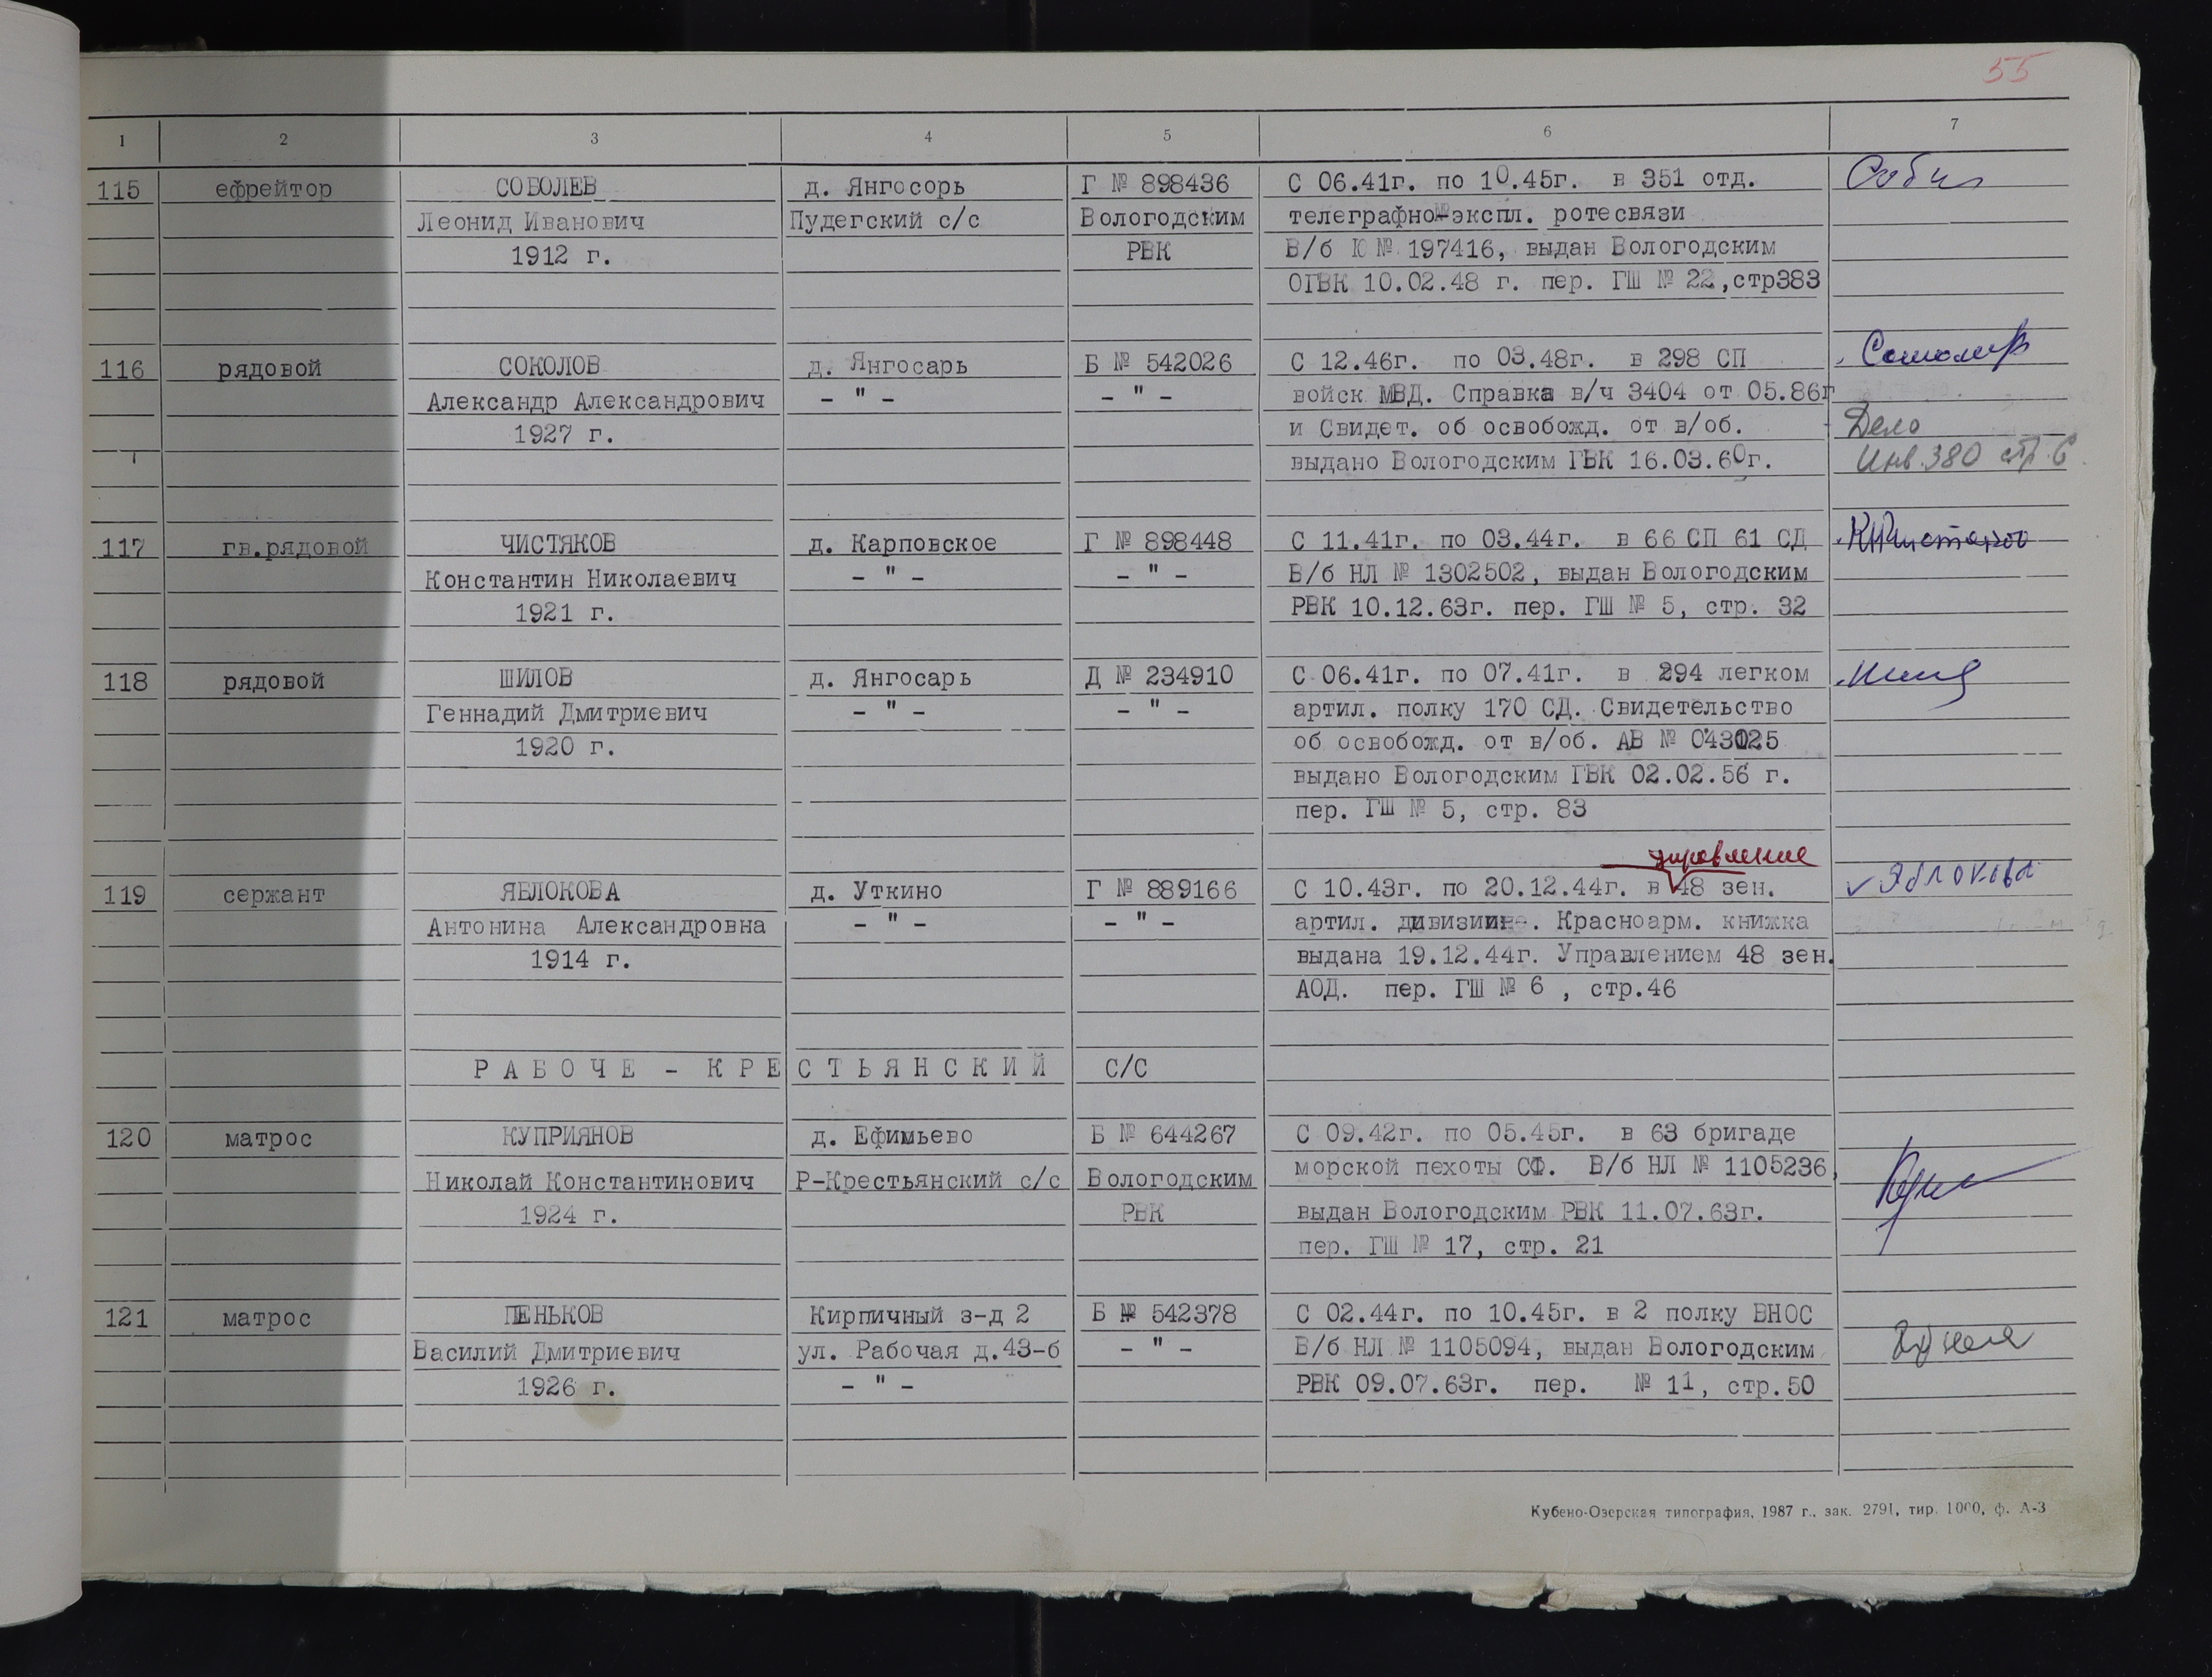 55
1 2 3 4 5 6 7
115 ефрейтор СОБОЛЕВ д. Янгосорь Г № 898436 С 06.41г. по 10.45г. в 351 отд.
Леонид Иванович Пудегский с/с Вологодским телеграфно-экспл. ротесвязи
1912 г. РВК В/б Ю № 197416, выдан Вологодским
ОГВК 10.02.48 г. пер. ГШ № 22,стр383
116 рядовой СОКОЛОВ д. Янгосарь Б № 542026 С 12.46г. по 03.48г. в 298 СП
Александр Александрович – " – – " – войск МВД. Справка в/ч 3404 от 05.86г
1927 г. и Свидет. об освобожд. от в/об. Дело
выдано Вологодским ГВК 16.03.60г. Инв.380 стр.6
117 гв.рядовой ЧИСТЯКОВ д. Карповское Г № 898448 С 11.41г. по 03.44г. в 66 СП 61 СД
Константин Николаевич – " – – " – В/б НЛ № 1302502, выдан Вологодским
1921 г. РВК 10.12.63г. пер. ГШ № 5, стр. 32
118 рядовой ШИЛОВ д. Янгосарь Д № 234910 С 06.41г. по 07.41г. в 294 легком
Геннадий Дмитриевич – " – – " – артил. полку 170 СД. Свидетельство
1920 г. об освобожд. от в/об. АВ № 043025
выдано Вологодским ГВК 02.02.56 г.
пер. ГШ № 5, стр. 83
управление
119 сержант ЯБЛОКОВА д. Уткино Г № 889166 С 10.43г. по 20.12.44г. в 48 зен. Яблокова
Антонина Александровна – " – – " – артил. дивизии. Красноарм. книжка
1914 г. выдана 19.12.44г. Управлением 48 зен.
АОД. пер. ГШ № 6 , стр.46
РАБОЧЕ - КРЕСТЬЯНСКИЙ С/С
120 матрос КУПРИЯНОВ д. Ефимьево Б № 644267 С 09.42г. по 05.45г. в 63 бригаде
Николай Константинович Р-Крестьянский с/с Вологодским морской пехоты СФ. В/б НЛ № 1105236,
1924 г. РВК выдан Вологодским РВК 11.07.63г.
пер. ГШ № 17, стр. 21
121 матрос ПЕНЬКОВ Кирпичный з-д 2 Б № 542378 С 02.44г. по 10.45г. в 2 полку ВНОС
Василий Дмитриевич ул. Рабочая д.43-б – " – В/б НЛ № 1105094, выдан Вологодским
1926 г. – " – РВК 09.07.63г. пер. № 11, стр.50
Кубено-Озерская типография, 1987 г., зак. 2791, тир. 1000, ф. А-3